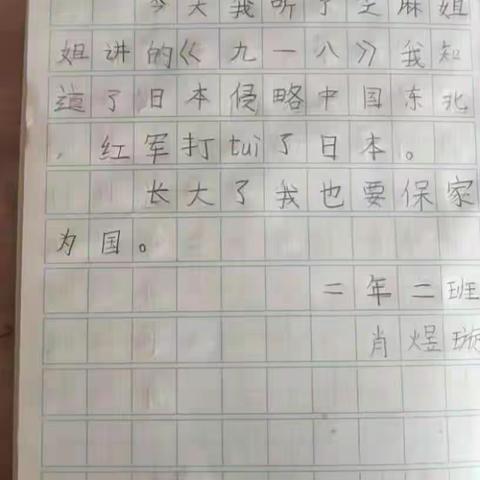 今天我听了芝麻姐
姐讲的《九一八》我知
道了日本侵略中国东北
，红军打tui了日本。
长大了我也要保家
为国。
二年二班
肖煜璇